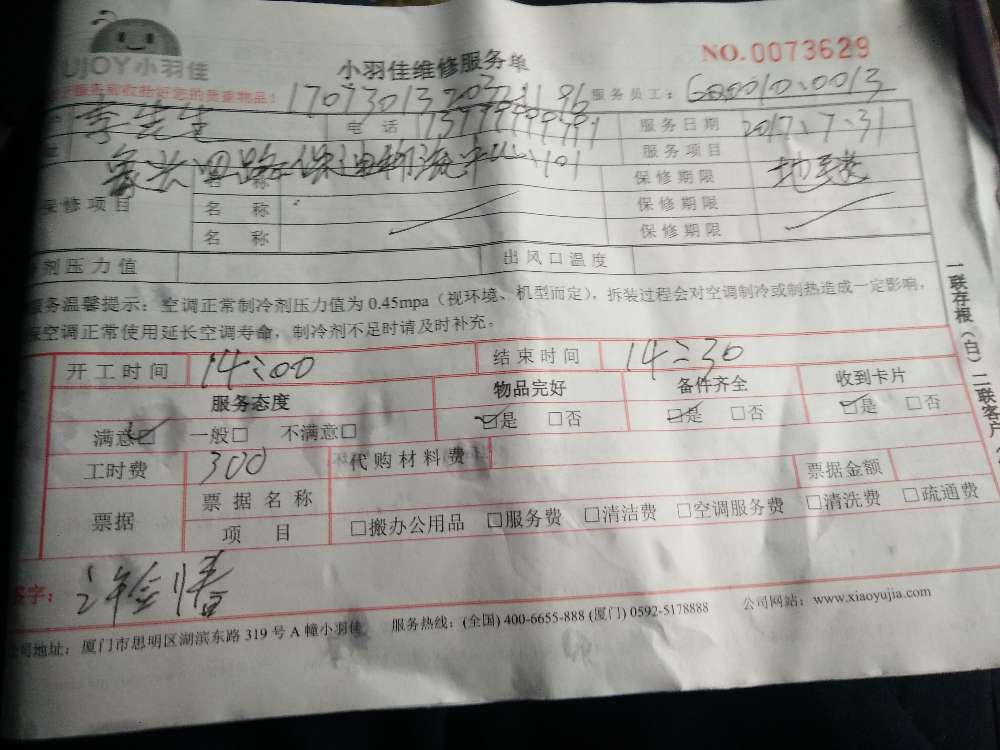 UJOY小羽佳
小羽佳维修服务单
NO.0073629
服务员工:
李先生
电话
服务日期 2017、7、31
服务项目
象兴四路 101
名称
保修期限 地毯
保修项目
名称
保修期限
名称
保修期限
剂压力值
出风口温度
服务温馨提示：空调正常制冷剂压力值为 0.45mpa（视环境、机型而定），拆装过程会对空调制冷或制热造成一定影响，
保空调正常使用延长空调寿命，制冷剂不足时请及时补充。
开工时间 14:00 结束时间 14:30
服务态度 物品完好 备件齐全 收到卡片
满意☑ 一般□ 不满意□ ☑是 □否 ☑是 □否 ☑是 □否
工时费 300 代购材料费
票据 票据名称 票据金额
项目 □搬办公用品 □服务费 □清洁费 □空调服务费 □清洗费 □疏通费
字：
公司地址：厦门市思明区湖滨东路 319 号 A 幢小羽佳 服务热线：(全国) 400-6655-888 (厦门) 0592-5178888 公司网站：www.xiaoyujia.com
一联存根（白）二联客户